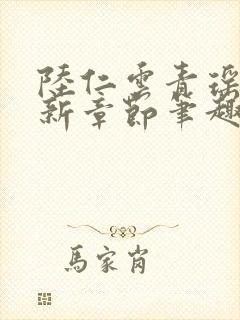 陸仁雲青瑤
新章節筆趣
馬家肖